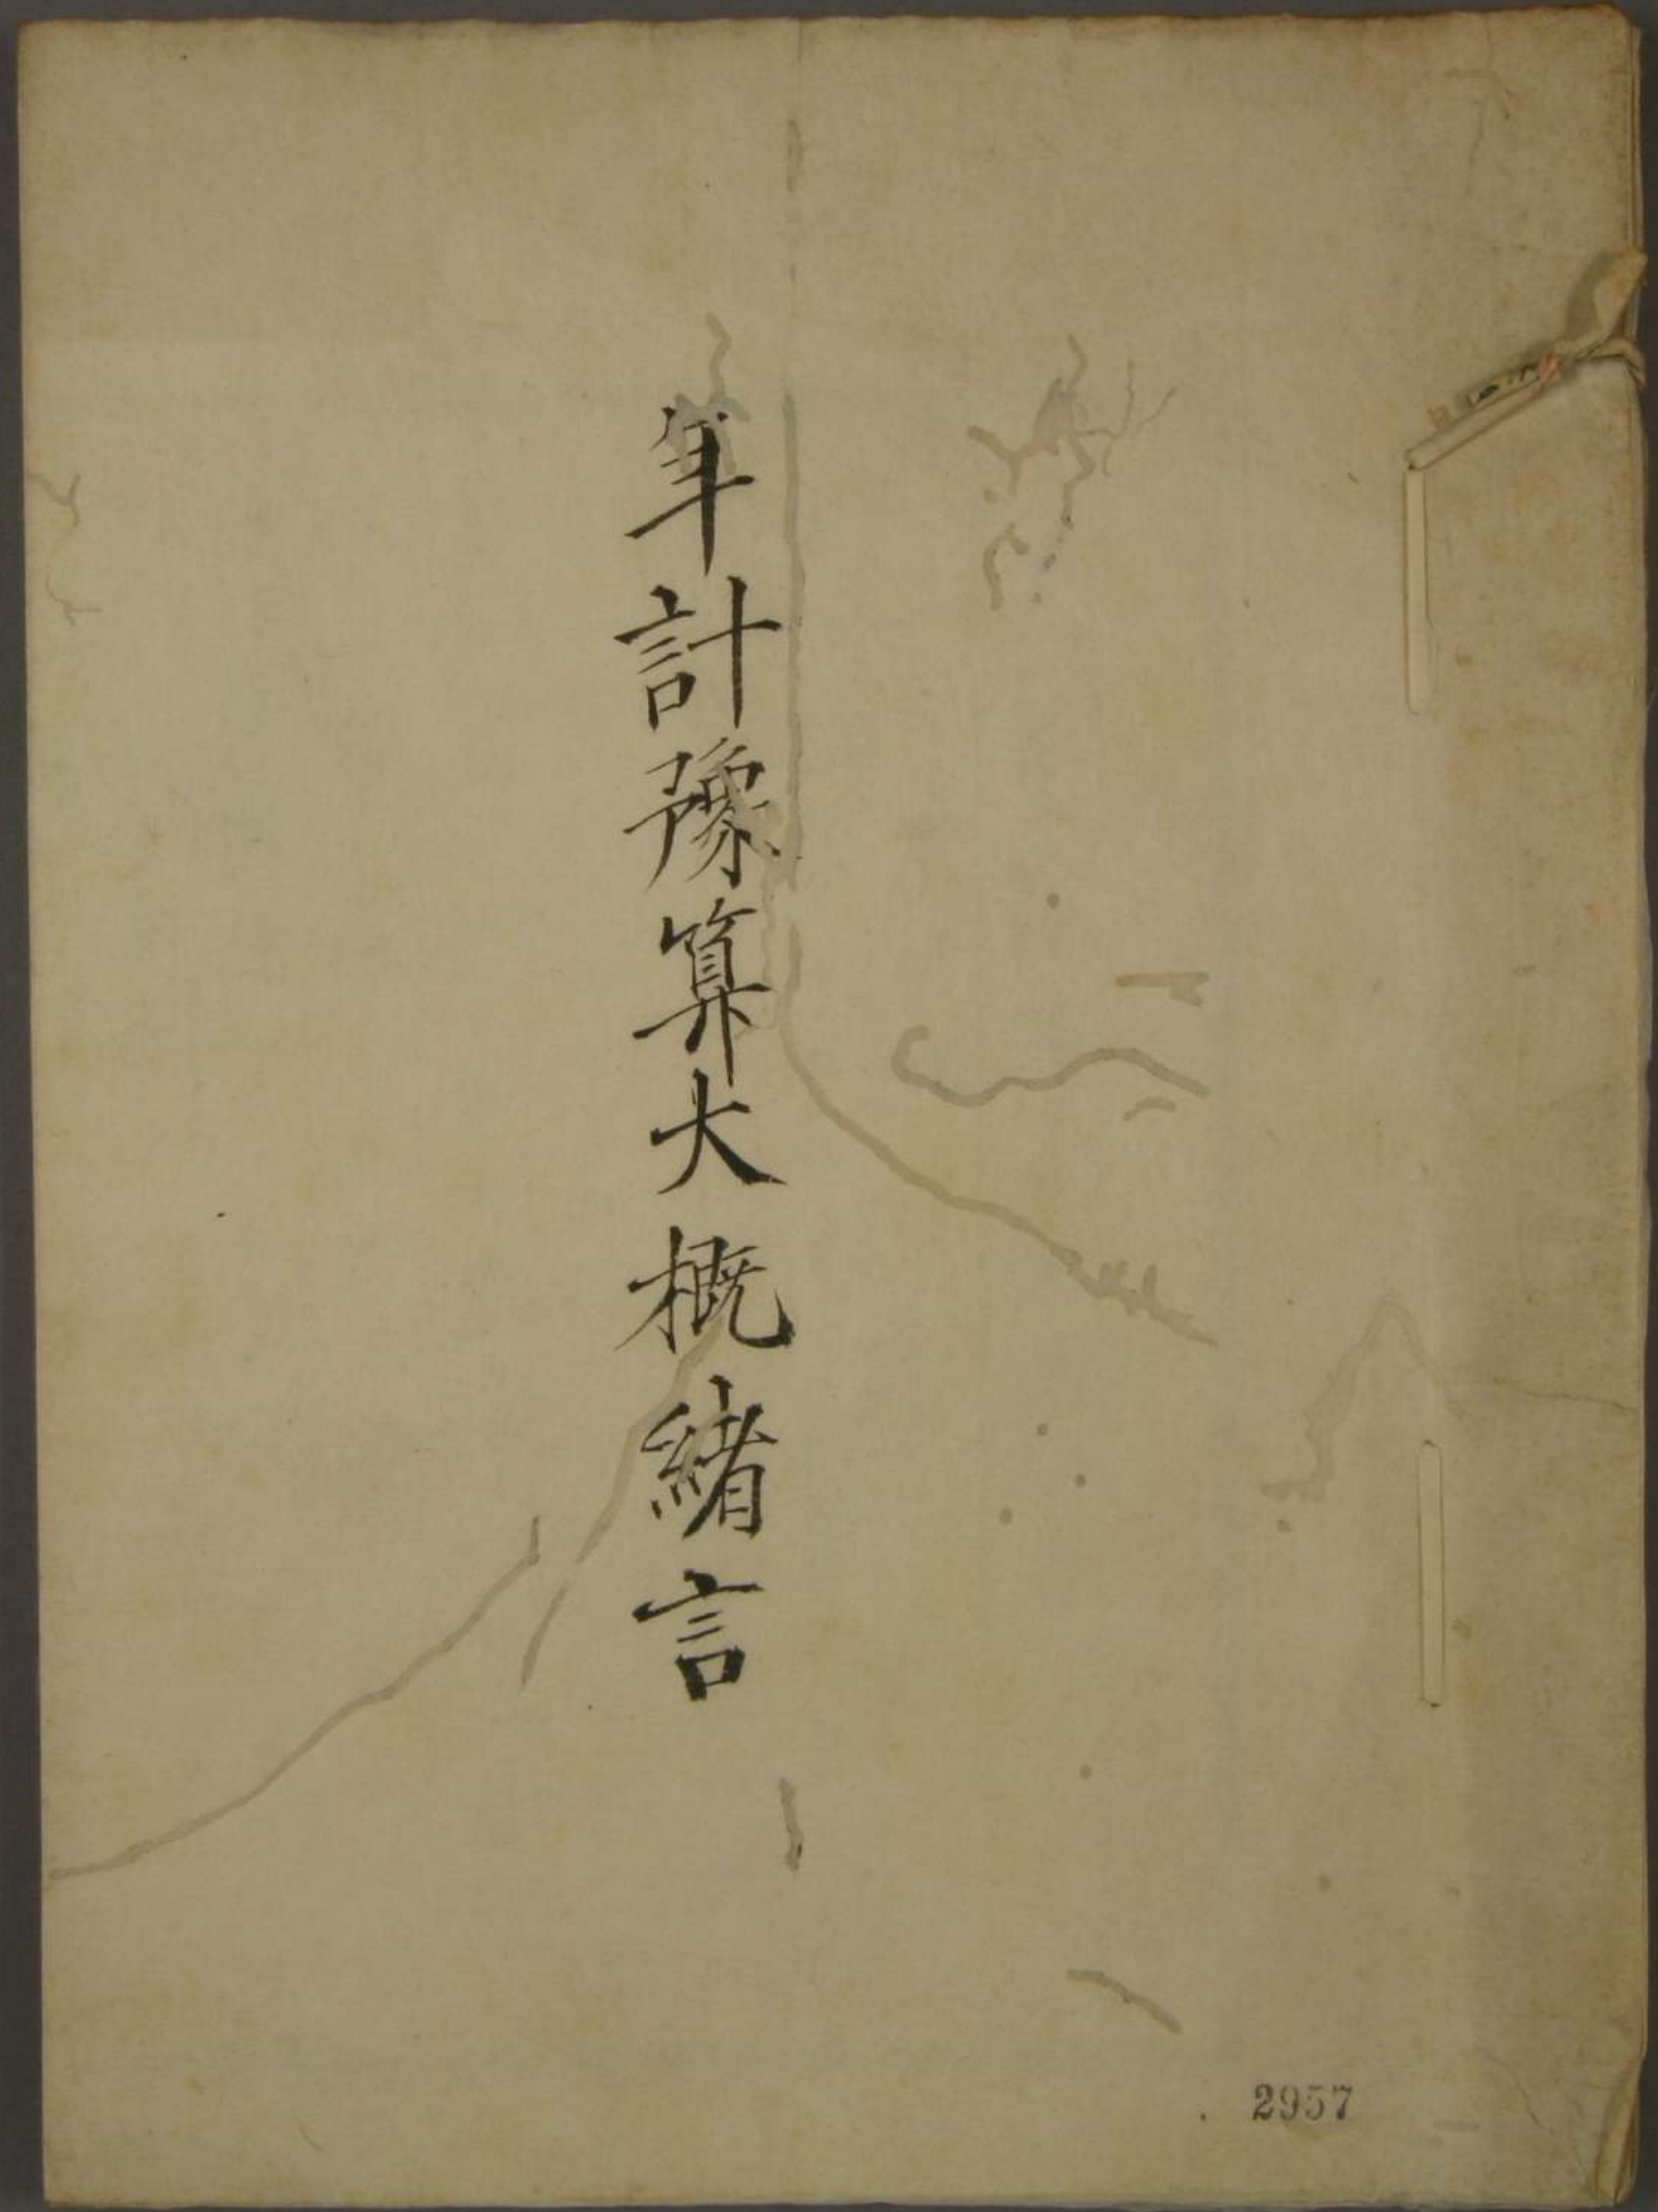 年計豫算大概緒言
2957